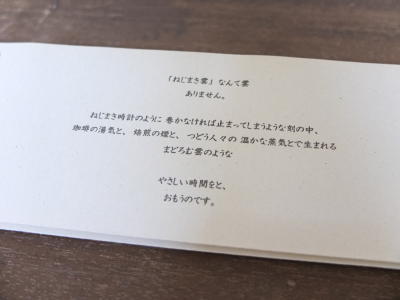 「ねじまき雲」なんて雲
ありません。
ねじまき時計のように 巻かなければ止まってしまうような刻の中、
珈琲の湯気と、焙煎の煙と、つどう人々の 温かな蒸気とで生まれる
まどろむ雲のような
やさしい時間をと、
おもうのです。